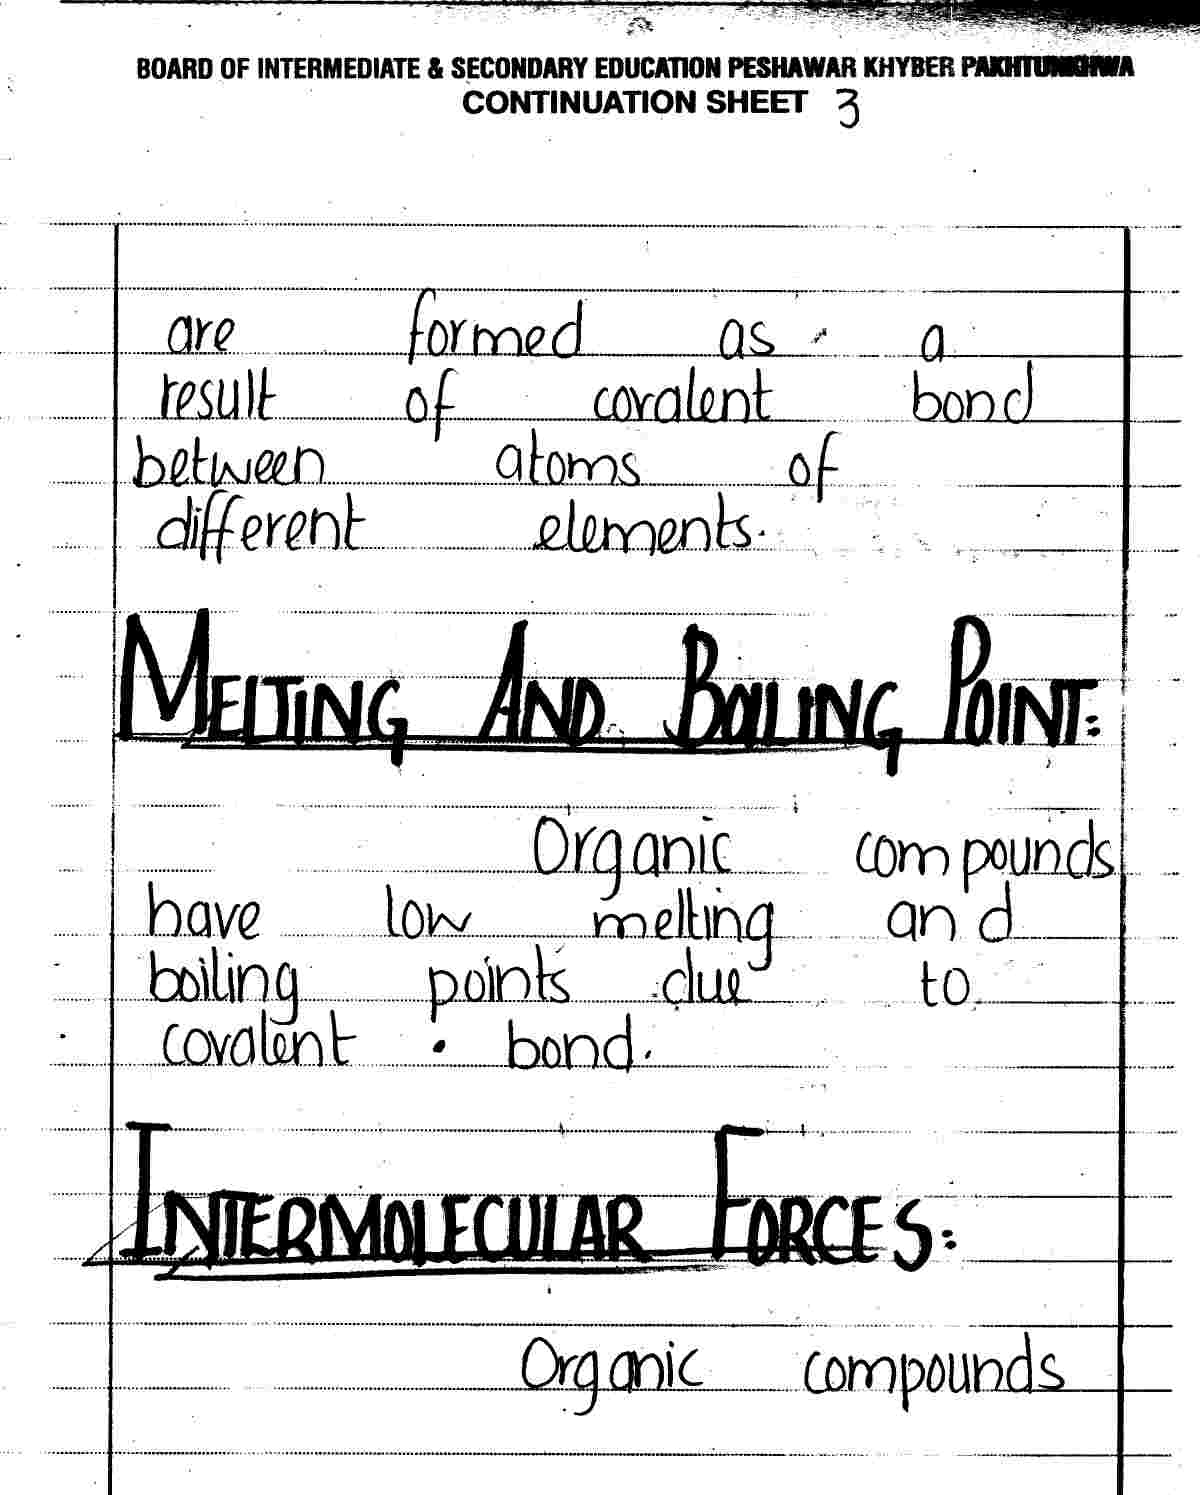 BOARD OF INTERMEDIATE & SECONDARY EDUCATION PESHAWAR KHYBER PAKHTUNKHWA
CONTINUATION SHEET 3
are formed as a
result of covalent bond
between atoms of
different elements.
MELTING AND BOILING POINT:
Organic compounds
have low melting and
boiling points due to
covalent bond.
INTERMOLECULAR FORCES:
Organic compounds